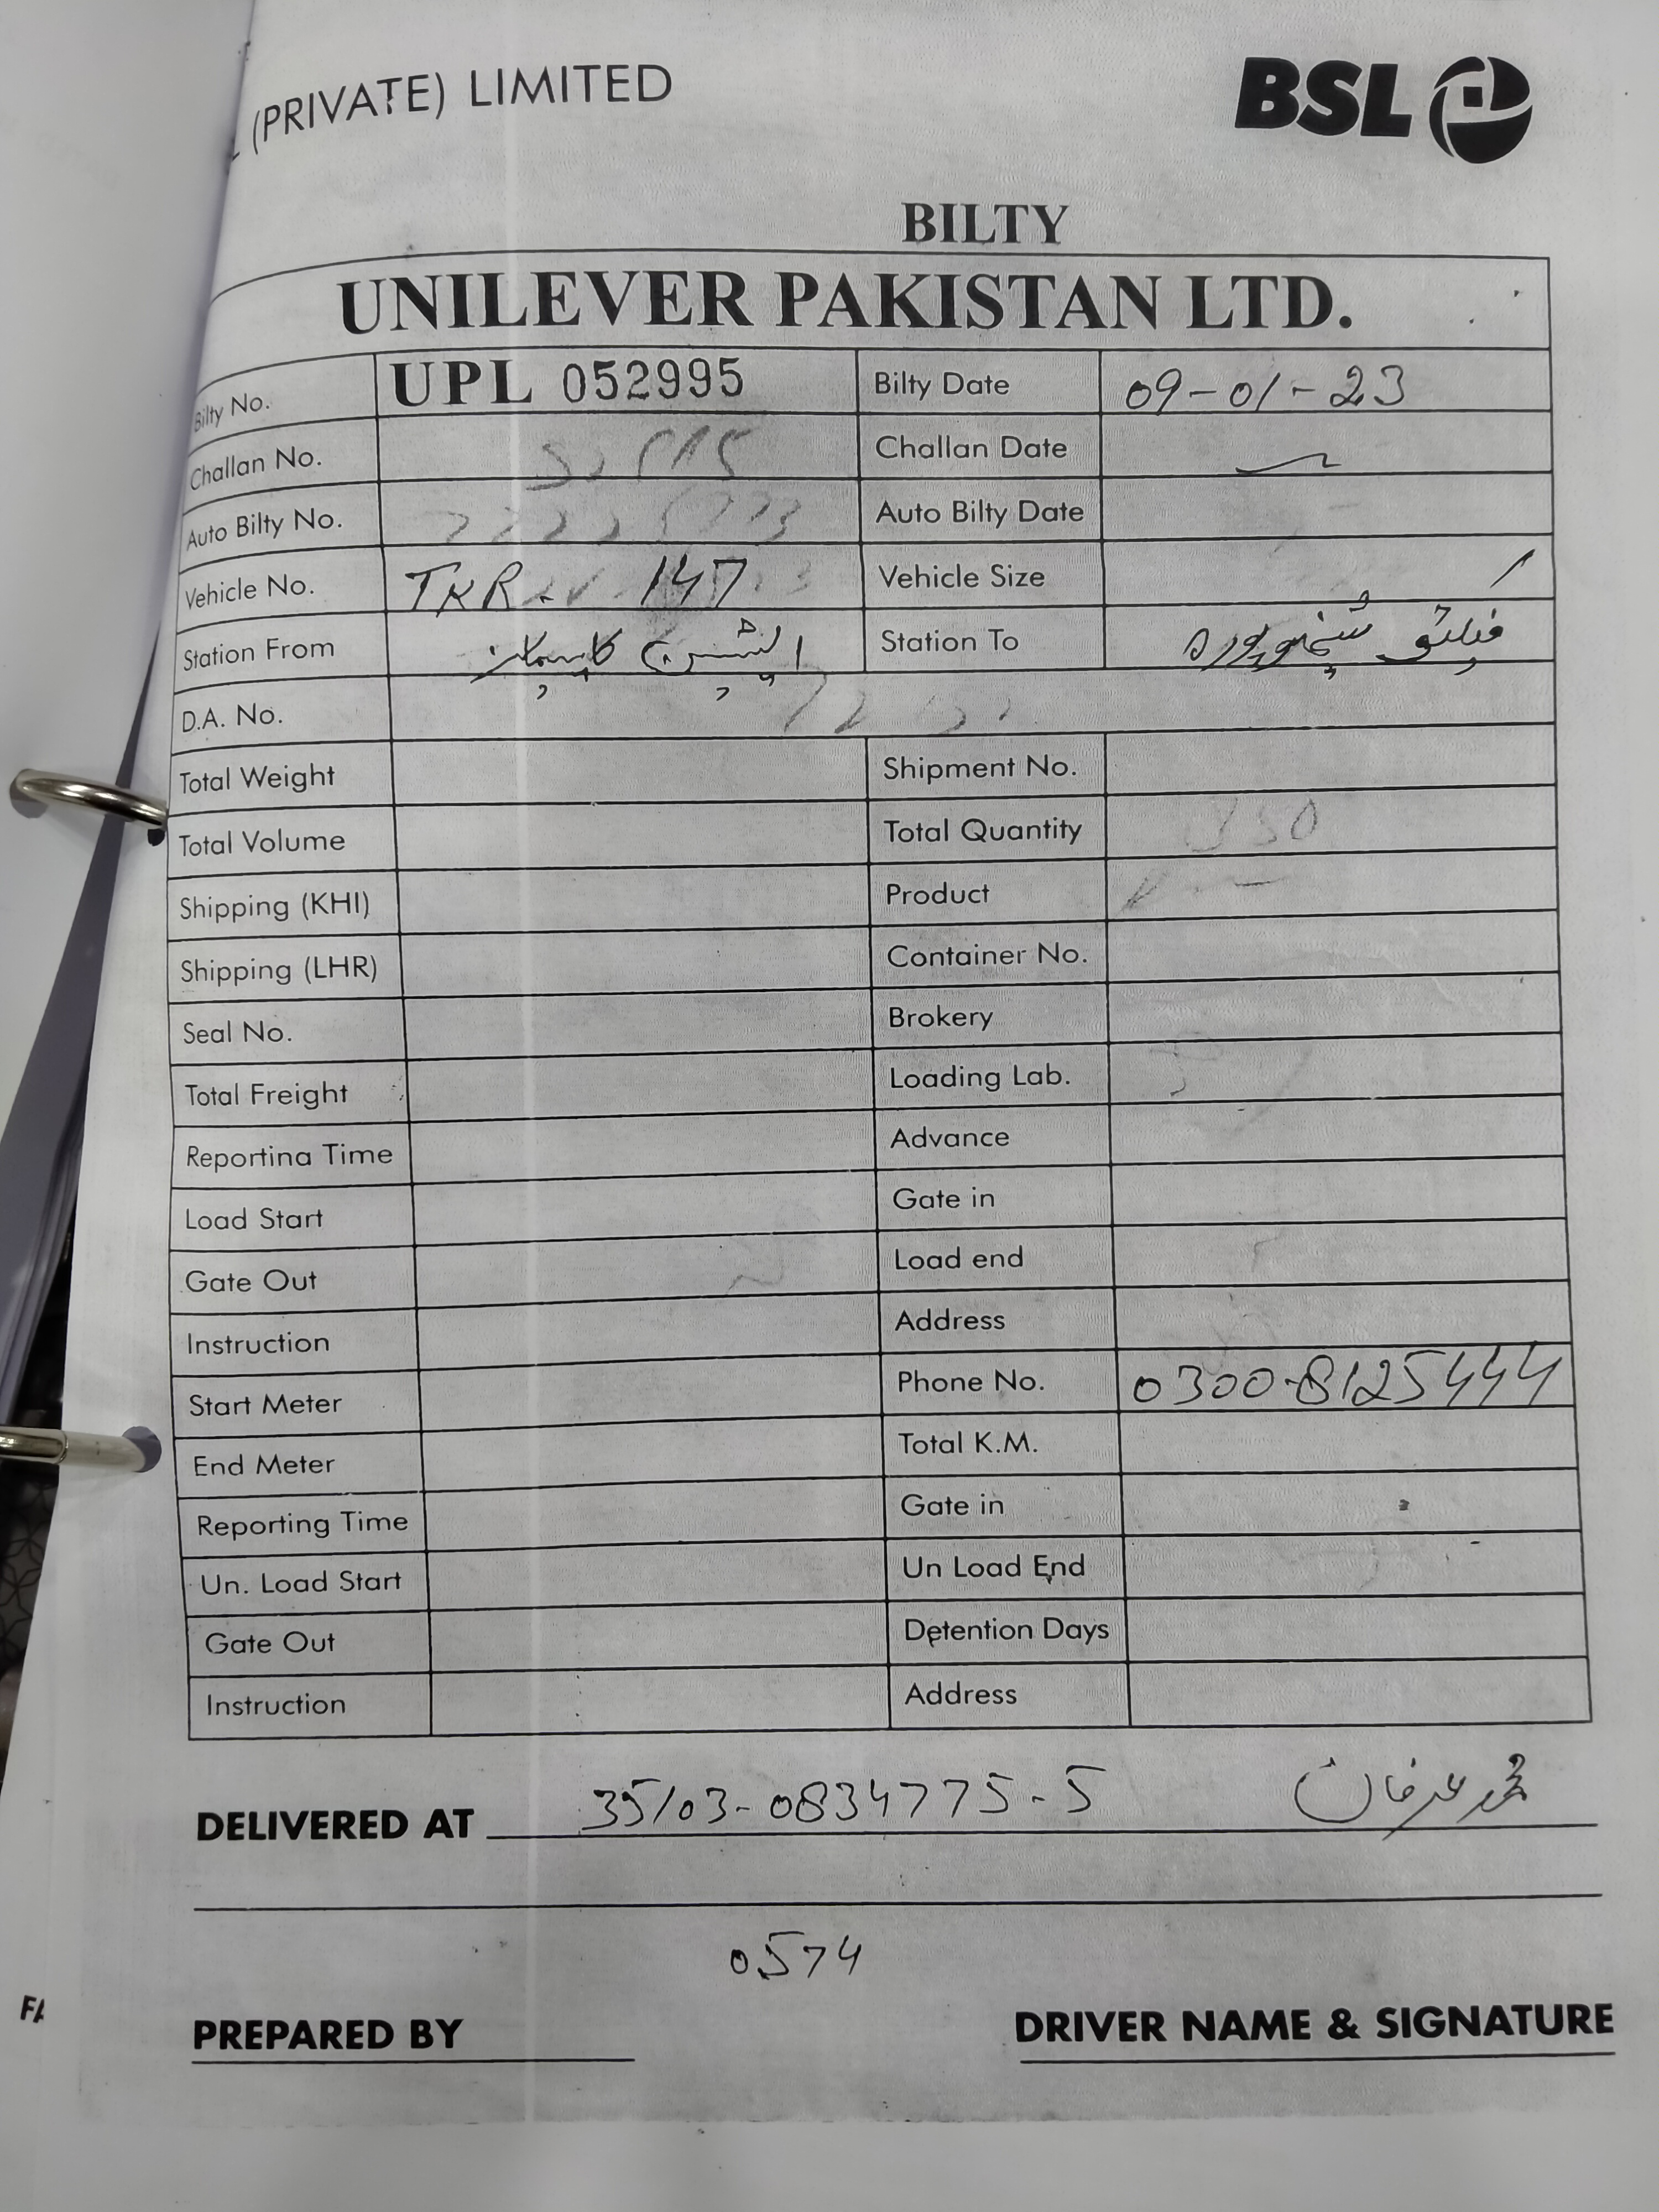 (PRIVATE) LIMITED
BSL
BILTY
UNILEVER PAKISTAN LTD.
Bilty No. UPL 052995 Bilty Date 09-01-23
Challan No. Challan Date
Auto Bilty No. Auto Bilty Date
Vehicle No. TKR - 147 Vehicle Size
Station From Station To شیخوپورہ
D.A. No.
Total Weight Shipment No.
Total Volume Total Quantity
Shipping (KHI) Product
Shipping (LHR) Container No.
Seal No. Brokery
Total Freight Loading Lab.
Reportina Time Advance
Load Start Gate in
Gate Out Load end
Instruction Address
Start Meter Phone No. 0300-8125444
End Meter Total K.M.
Reporting Time Gate in
Un. Load Start Un Load End
Gate Out Detention Days
Instruction Address
DELIVERED AT 35103-0834775-5 محمد عرفان
0574
PREPARED BY DRIVER NAME & SIGNATURE